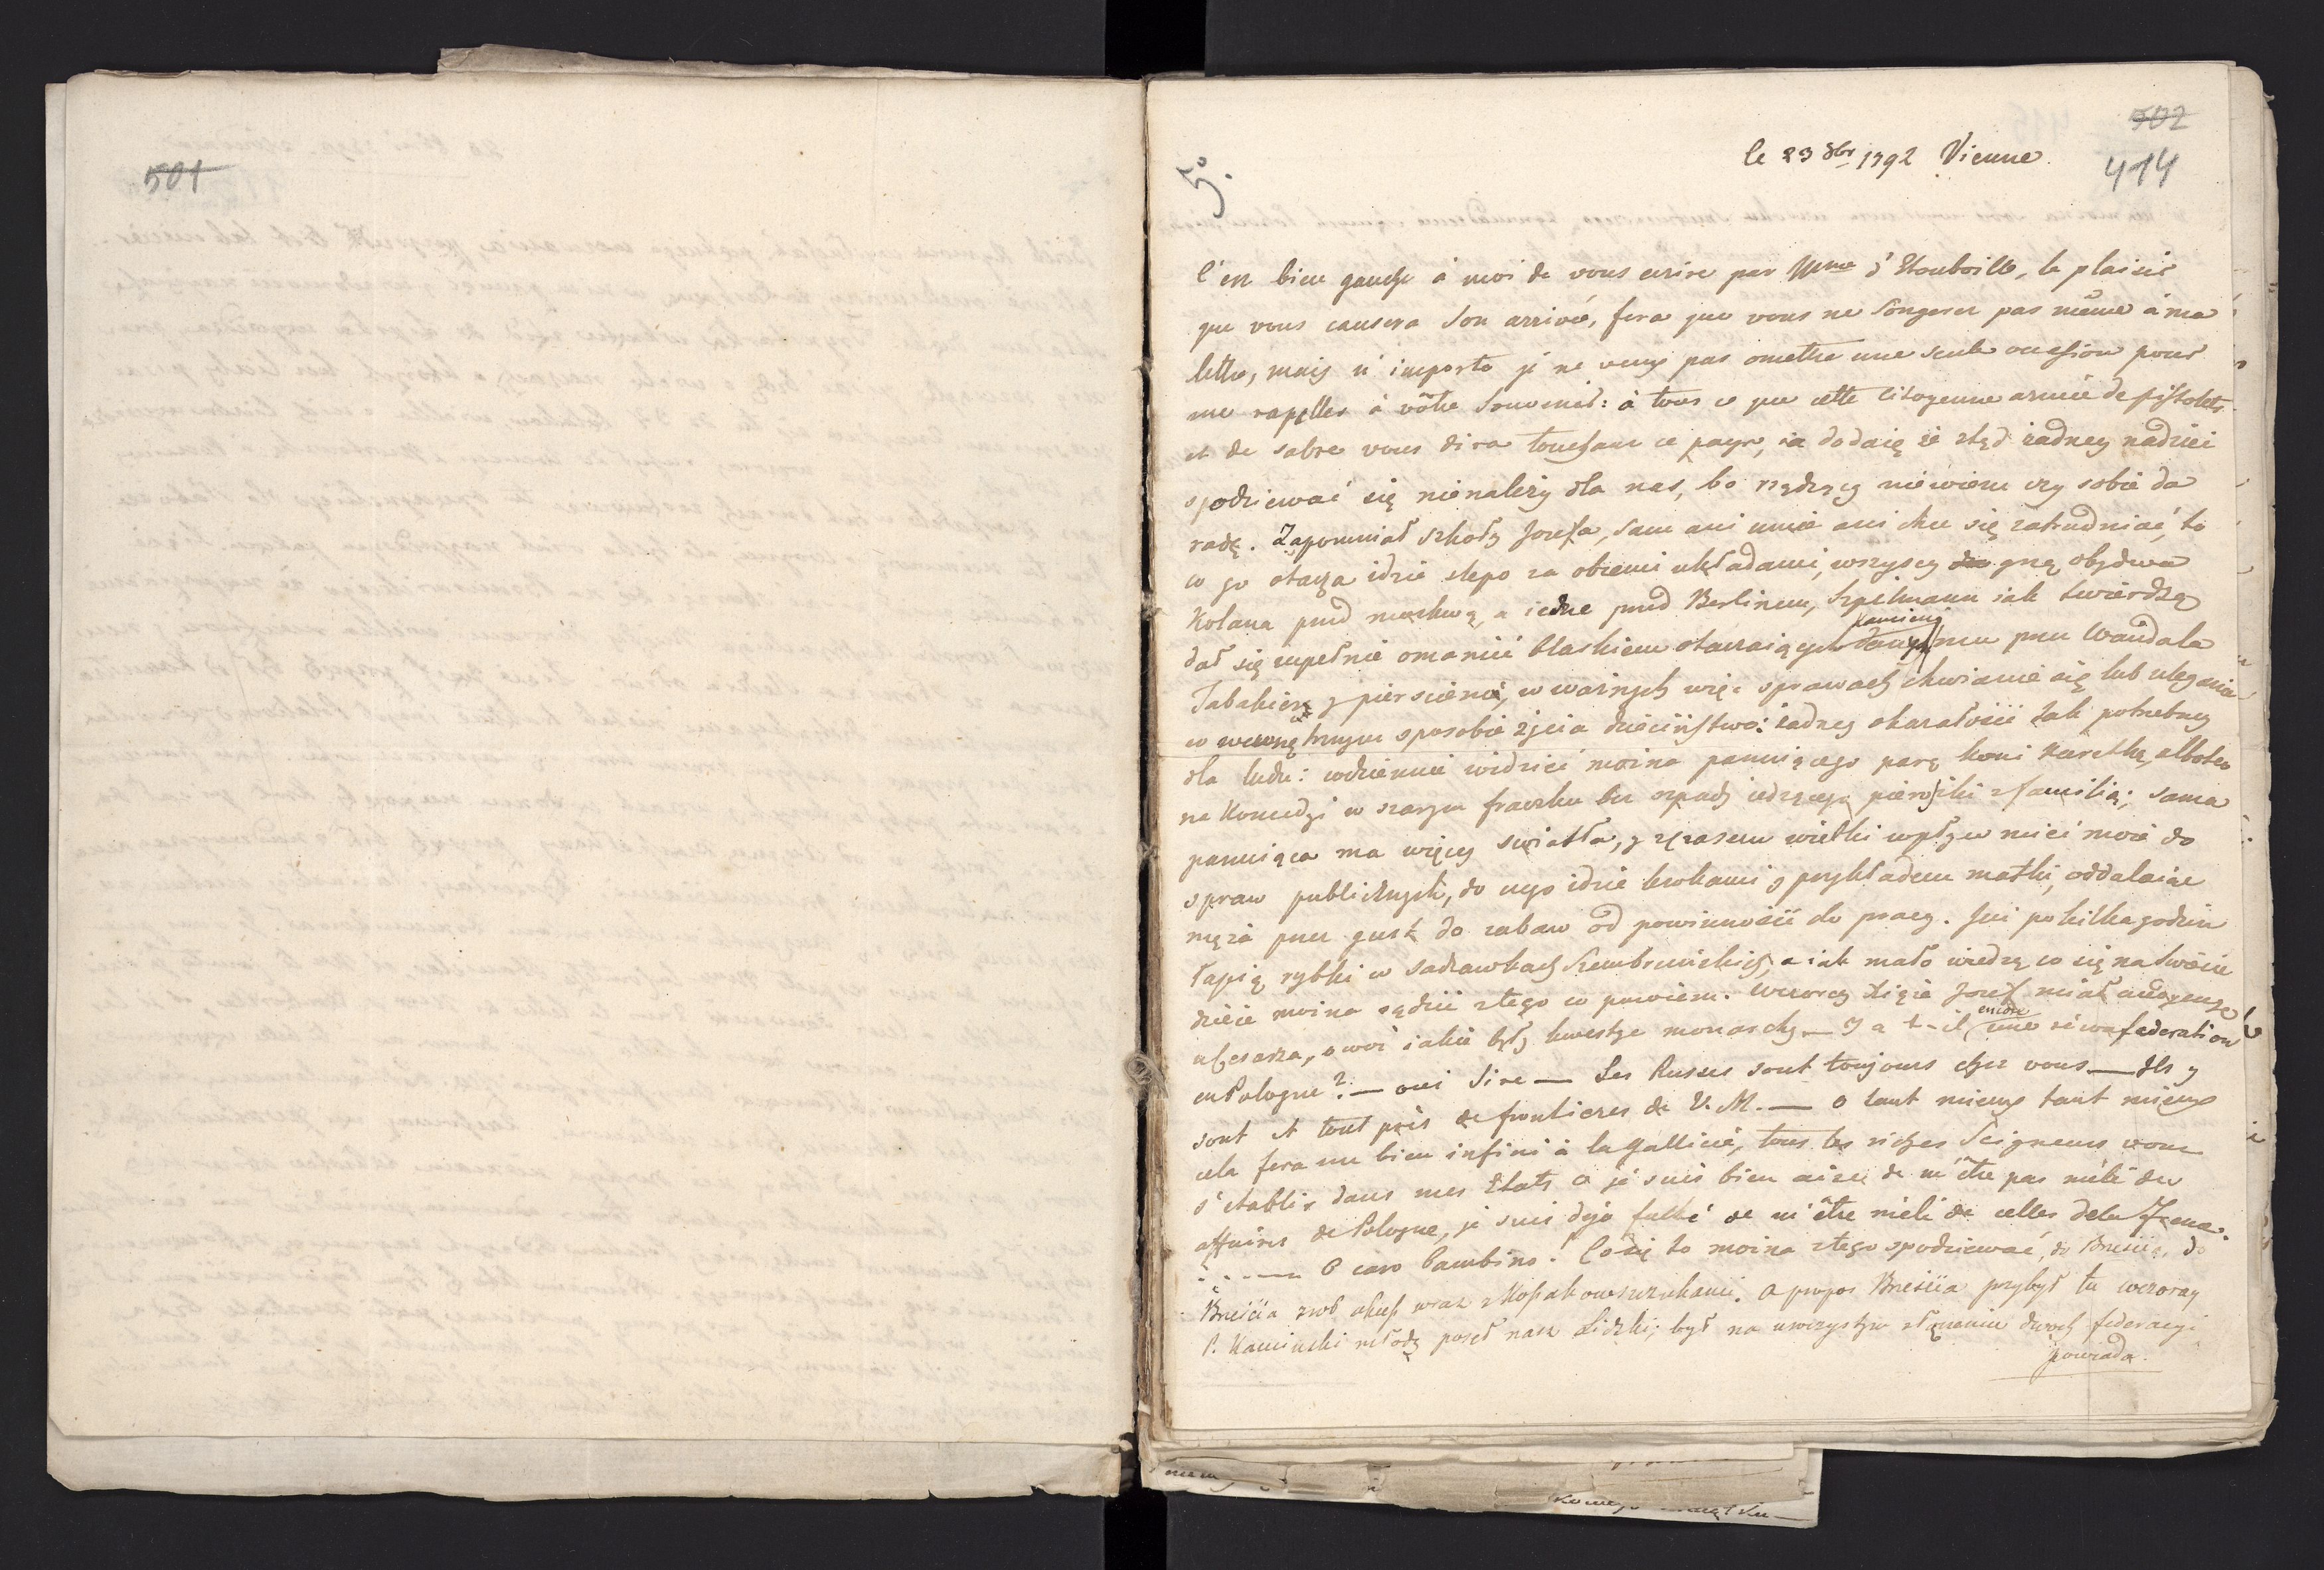 501
502
414
5.°
le 23 8br 1792 Vienne.
C'est bien gauche à moi de vous ecrire par Mme d'Houboille, le plaisir
que vous causera son arrivée, fera que vous ne songerez pas même à ma
lettre, mais n'importe je ne veux pas omettre une seule occasion pour
me rapeller à vôtre souvenir: à tous ce que cette citoyenne armée de pistolets
et de sabre vous dira touchant ce pays, ia dodaię że ztąd żadney nadziei
spodziewać się nienależy dla nas, bo rządzący niewiem czy sobie da
radę. Zapomniał szkoły Jozefa, sam ani umie ani chce się zatrudniać, to
co go otacza idzie slepo za obcemi układami, wszyscy gną obydwa
Kolana przed moskwą, a iedne przed Berlinem, Szpilmann iak twierdzą
dał się zupełnie omamić blaskiem otaczaiących
kamieni
mu przez Wandala
Tabakierę y pierscienie, w ważnych więc sprawach chwianie się lub uleganie
w wewnętrznym sposobie życia dzieciństwo: żadney okazałości tak potrzebney
dla ludu: codziennie widzieć można panuiącego parą koni karetką, albo też
na Komedyi w szarym fraczku bez szpady iedzącego pierożki z familią; sama
panuiąca ma więcey swiatła, y z czasem wielki wpływ mieć może do
spraw publicznych, do czego idzie krokami y przykładem matki, oddalaiąc
męża przez gust do zabaw od powinności do pracy. Jeśli po kilka godzin
łapią rybki w sadzawkach Szembrunskich, a iak mało wiedzą co się na swiecie
dzieie można sądzić z tego co powiem. Wczoray Xiąże Jozef miał audyencye
u Cesarza, owoż iakie były kwestye monarchy — Y a t-il
encore
une réconfederation
en Pologne? — oui Sire — Les Russes sont toujours chez vous — Ils y
sont et tout près de frontieres de V. M. — o tant mieux tant mieux
cela fera un bien infini à la Gallicie, tous les riches Seigneurs vont
s'etablir dans mes Etats o je suis bien aise de n'être pas mêlé des
affaires de Pologne, je suis deja faché de m'être mêlé de celles de la France.
..... O caro bambino! Co się to można z tego spodziewać, do Brescia, do
Brescia zrob okup wraz z Kossakowszczykami. A propos Brescia przybył tu wczoray
P. Kaminski młody poseł nasz Lidzki; był na uroczystym złączeniu dwoch federacyi
powiada.